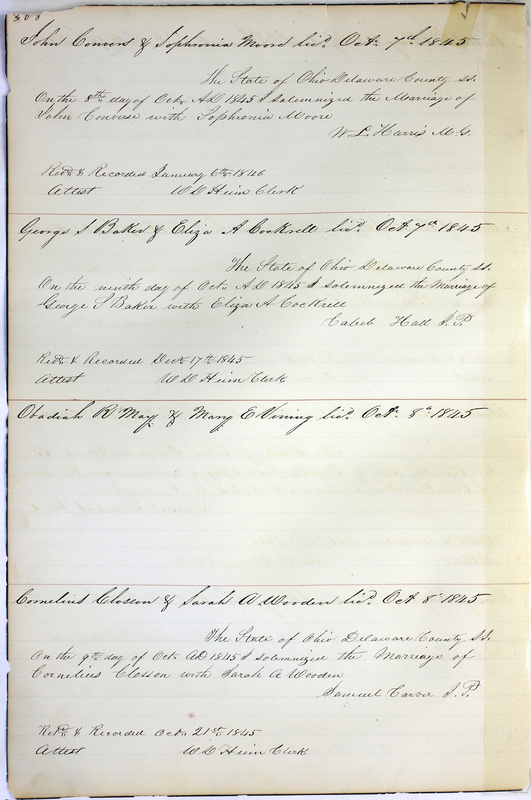 John Convers & Sophronia Moore licd. Oct. 7th 1845
The State of Ohio Delaware County ss.
On the 8th day of Oct. A.D 1845 I solemnized the Marriage of
John Converse with Sophronia Moore
W. L. Harris M.G.
Retd. & Recorded January 6th 1846
Attest W D Heim Clerk
George S Baker & Eliza A Cockrell licd. Oct. 7th 1845
The State of Ohio Delaware County ss.
On the ninth day of Oct. A.D 1845 I solemnized the Marriage of
George S Baker with Eliza A Cockrell
Caleb Hall J.P.
Retd. & Recorded Decr. 17th 1845
Attest W D Heim Clerk
Obadiah R. May & Mary E Vining licd. Oct. 8th 1845
Cornelius Closson & Sarah A Wooden licd. Oct 8th 1845
The State of Ohio Delaware County ss.
On the 9th day of Oct. AD 1845 I solemnized the Marriage of
Cornelius Closson with Sarah A Wooden
Samuel Carver J.P.
Retd. & Recorded Oct. 21st 1845
Attest W D Heim Clerk